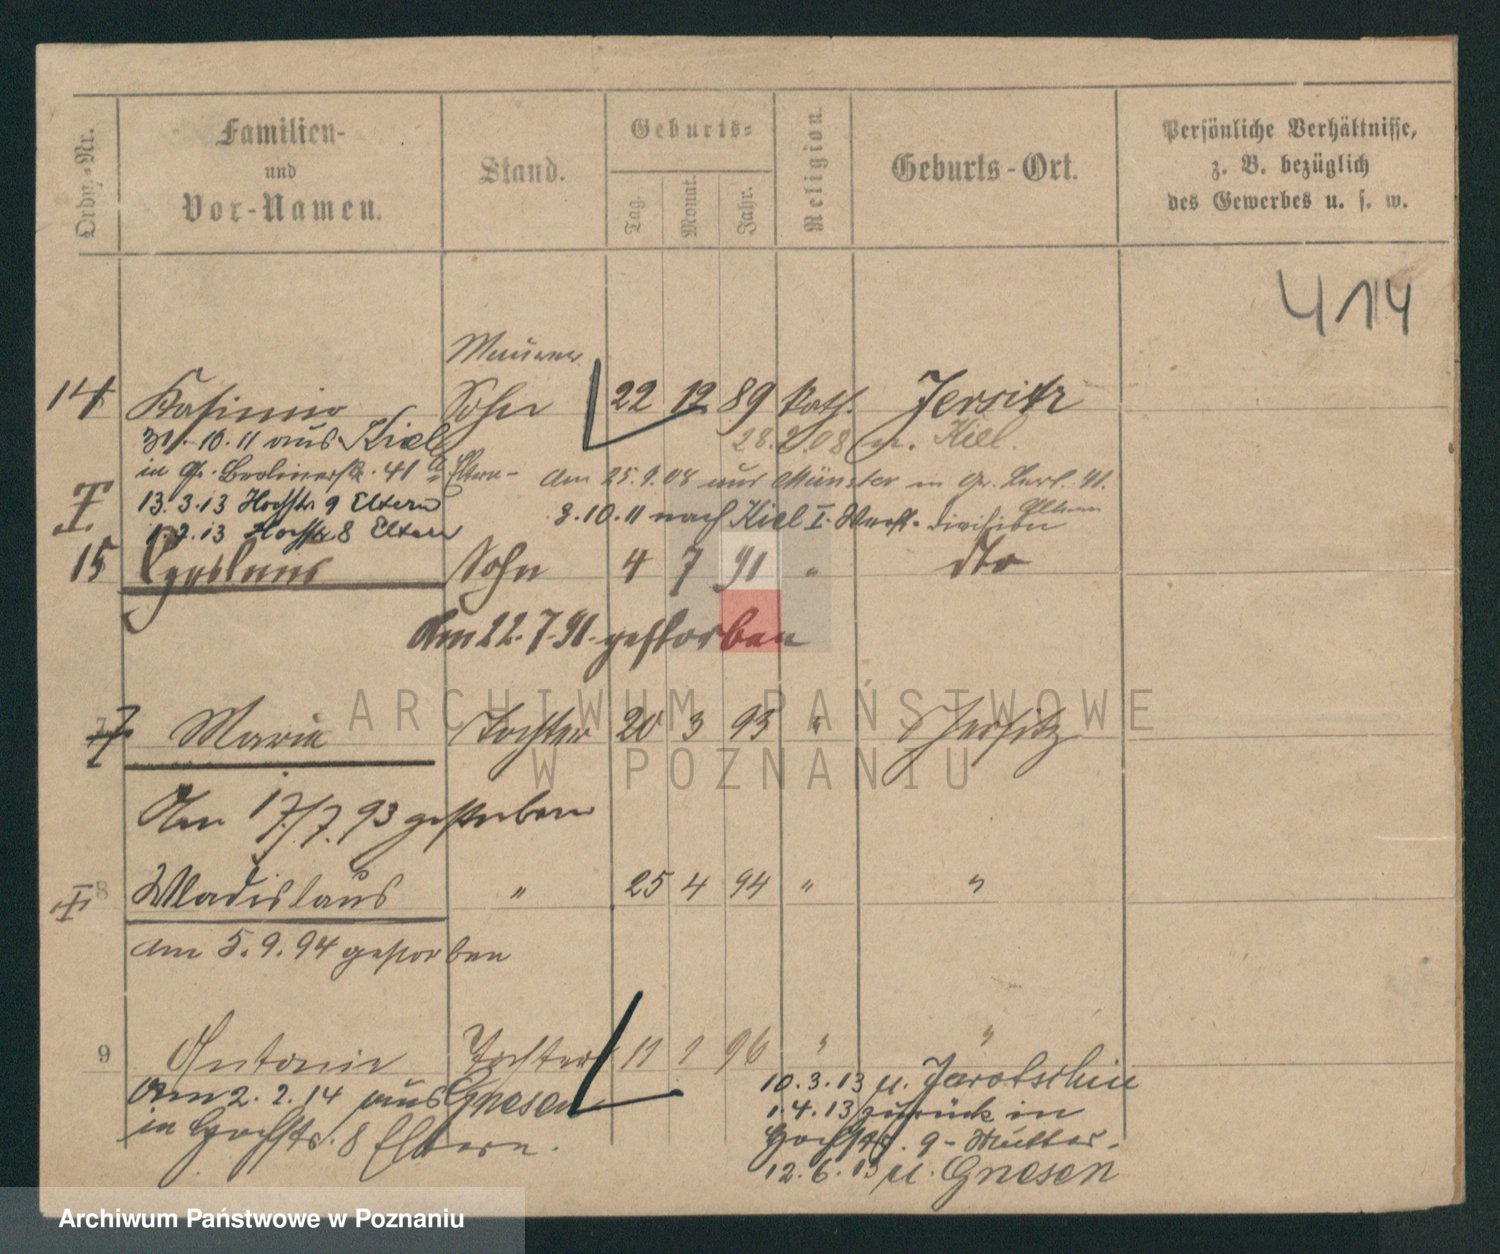 Ordng.-Nr.
Familien-
und
Vor-Namen.
Stand.
Geburts-
Tag.
Monat.
Jahr.
Religion.
Geburts-Ort.
Persönliche Verhältnisse,
z. B. bezüglich
des Gewerbes u. s. w.
414
Maurer
14 Kasimir Sohn 22 12 89 kath. Jersitz
31.10.11 aus Kiel 28.2.08 n. Kiel.
in Gr. Berlinerstr. 41 Eltern - Am 25.9.08 aus Münster in Gr. Berl. 41.
13.3.13 Hochstr 9 Eltern Eltern
8.10.11 nach Kiel I. Werft-Division
1.7.13 Hochstr 8 Eltern
15 Sohn 4 7 91 " dto
Am 22.7.91. gestorben
ARCHIWUM PAŃSTWOWE
W POZNANIU
7 Marie Tochter 20 3 93 " Jersitz
Am 17/7.93 gestorben
8 Wladislaus " 25 4 94 " "
am 5.9.94 gestorben
9 Antonie Tochter 11 1 96 " "
Am 2.2.14 aus Gnesen
in Hochstr. 8 Eltern.
10.3.13 n. Jarotschin
1.4.13 zurück in
Hochstr. 9 - Mutter.
12.6.13 n. Gnesen
Archiwum Państwowe w Poznaniu